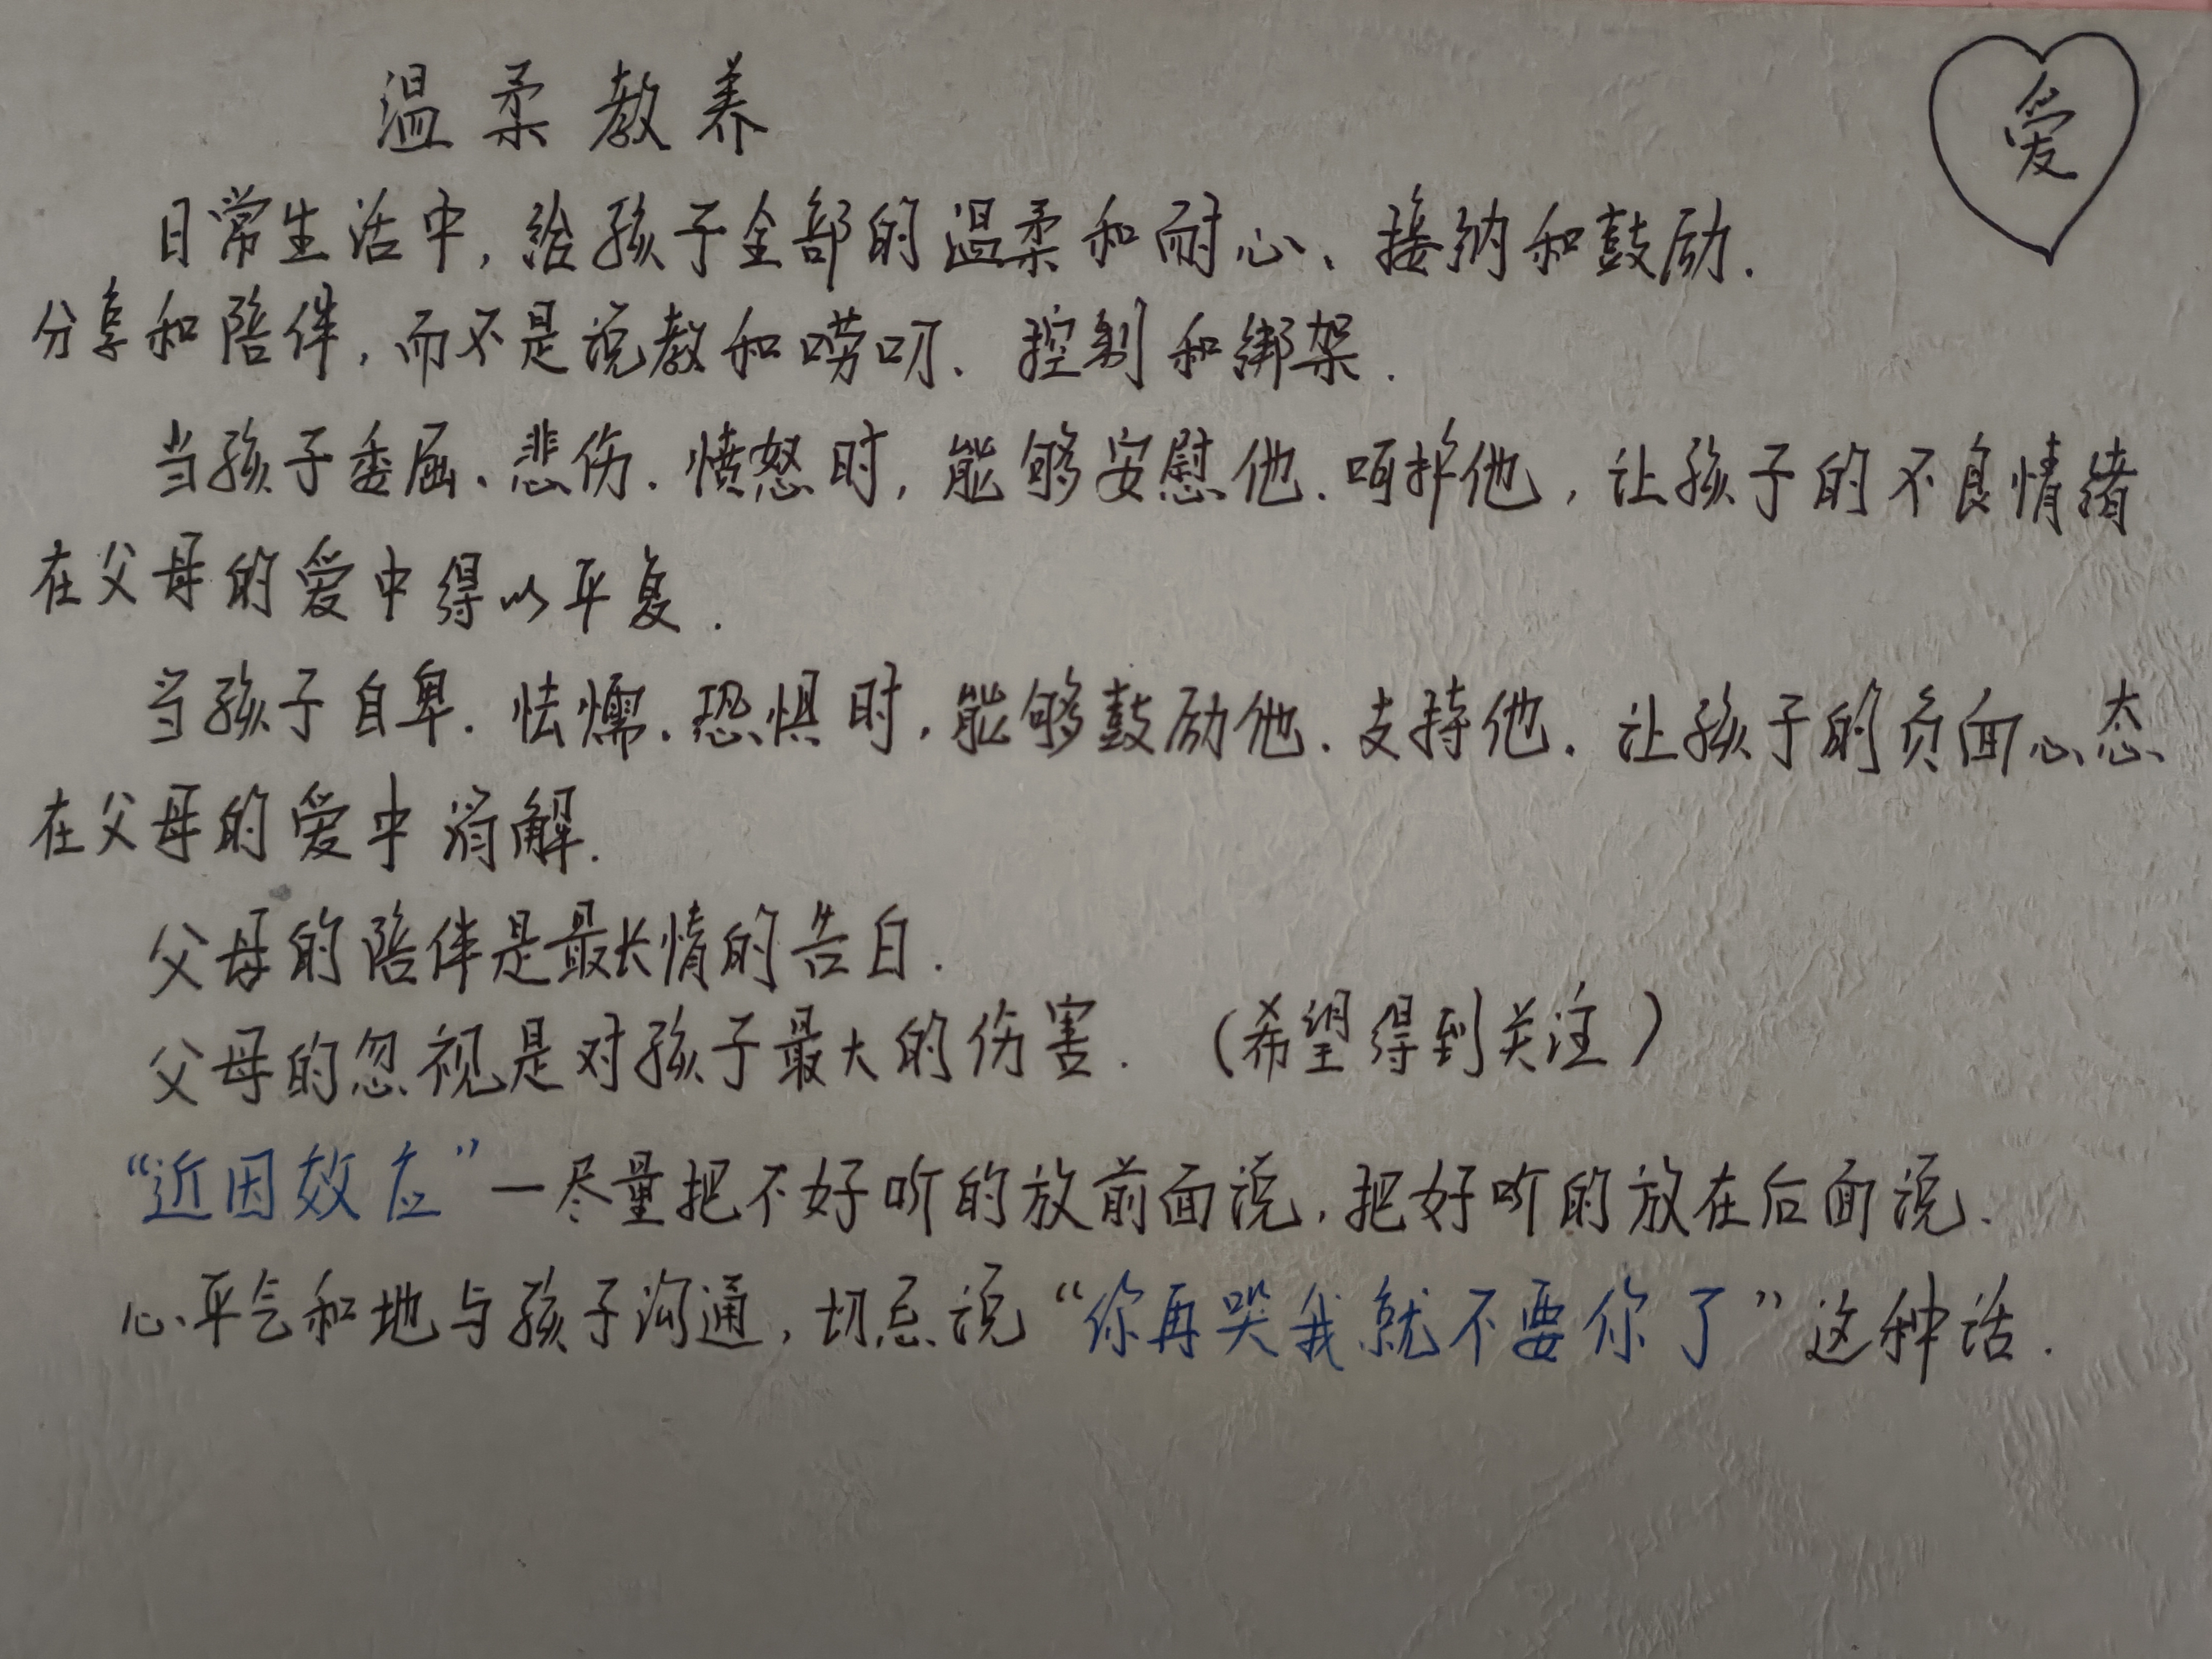 温柔教养
爱
日常生活中,给孩子全部的温柔和耐心、接纳和鼓励.
分享和陪伴,而不是说教和唠叨、控制和绑架.
当孩子委屈、悲伤.愤怒时,能够安慰他.呵护他,让孩子的不良情绪
在父母的爱中得以平复.
当孩子自卑.怯懦.恐惧时,能够鼓励他.支持他.让孩子的负面心态
在父母的爱中消解.
父母的陪伴是最长情的告白.
父母的忽视是对孩子最大的伤害. (希望得到关注)
“近因效应”—尽量把不好听的放前面说,把好听的放在后面说.
心平气和地与孩子沟通,切忌说“你再哭我就不要你了”这种话.